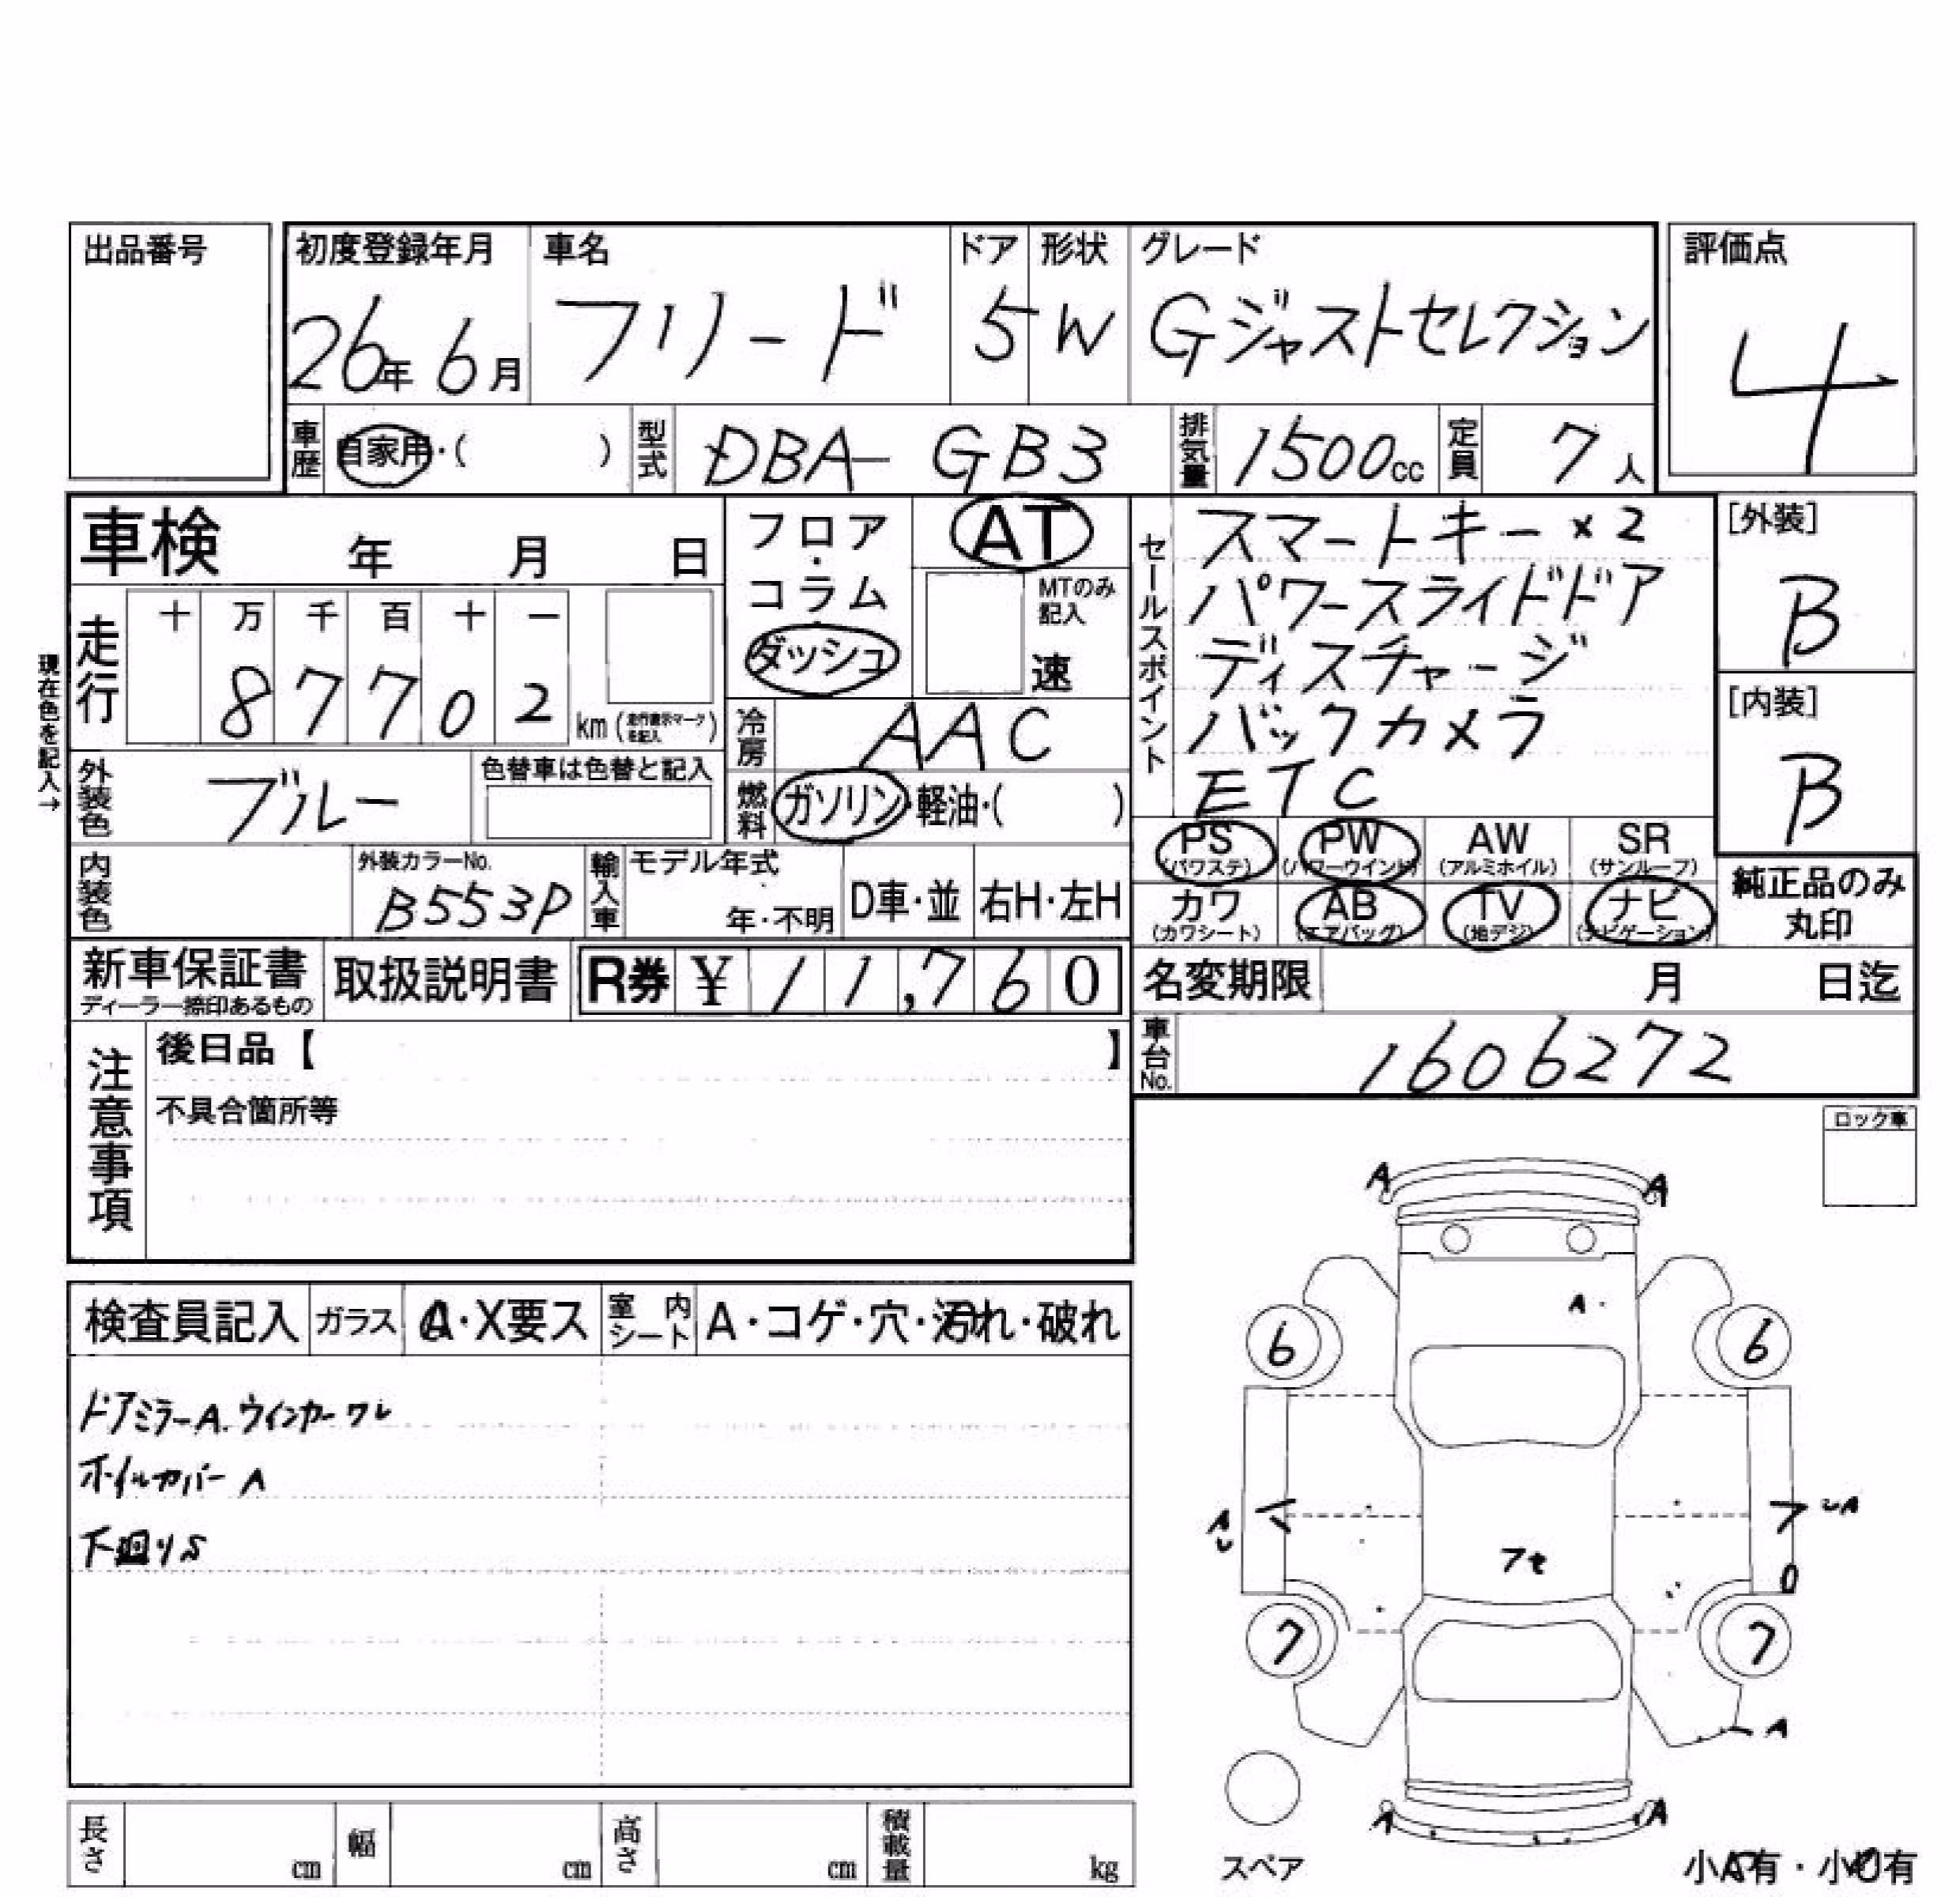 出品番号
初度登録年月 車名 ドア 形状 グレード 評価点
26年 6月 フリード 5 W Gジャストセレクション 4
車歴 自家用・( ) 型式 DBA- GB3 排気量 1500cc 定員 7人
車検 年 月 日
フロア・コラム・ダッシュ
AT
MTのみ記入
速
セールスポイント
スマートキー×2
パワースライドドア
ディスチャージ
バックカメラ
ETC
[外装]
B
[内装]
B
現在色を記入→
走行 十 万 千 百 十 一
8 7 7 0 2 km (走行表示マークを記入)
冷房 AAC
外装色 ブルー 色替車は色替と記入
燃料 ガソリン・軽油・( )
PS (パワステ) PW (パワーウインド) AW (アルミホイル) SR (サンルーフ)
カワ (カワシート) AB (エアバッグ) TV (地デジ) ナビ (ナビゲーション)
純正品のみ
丸印
内装色 外装カラーNo. B553P 輸入車 モデル年式 年・不明 D車・並 右H・左H
新車保証書 ディーラー捺印あるもの 取扱説明書 R券 ¥ 11,760
名変期限 月 日迄
車台No. 1606272
注意事項
後日品【 】
不具合箇所等
ロック車
検査員記入 ガラス A・X要ス 室内シート A・コゲ・穴・汚れ・破れ
ドアミラーA. ウインカーワレ
ホイルカバー A
下廻りS
A A
A
6 6
A
フセ
7 7
A
A A
スペア
長さ cm 幅 cm 高さ cm 積載量 kg
小A有・小U有